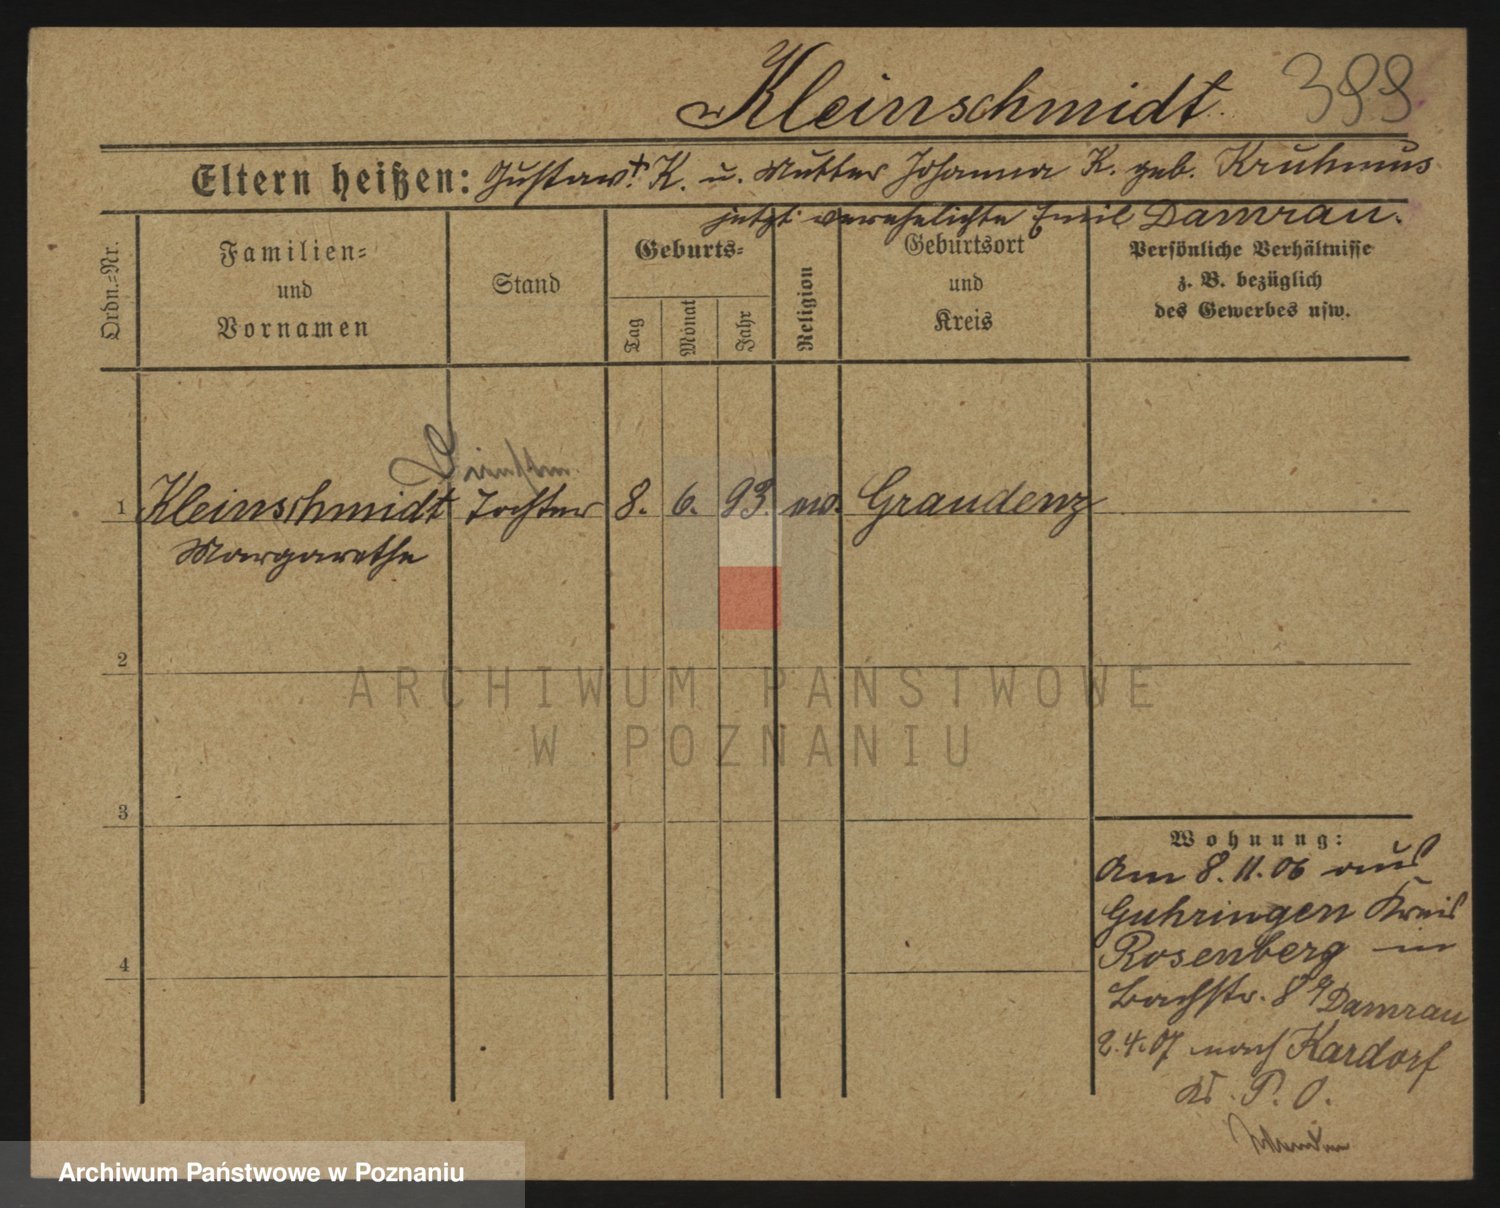 Kleinschmidt. 399
Eltern heißen: Gustaw † K. u. Mutter Johanna K. geb. Kruhmus
jetzt verehelichte Emil Damrau.
Ordn.=Nr.
Familien=
und
Vornamen
Stand
Geburts=
Tag
Monat
Jahr
Religion
Geburtsort
und
Kreis
Persönliche Verhältnisse
z. B. bezüglich
des Gewerbes usw.
1 Kleinschmidt Tochter 8. 6. 93. ew. Graudenz
Margarethe
2
3
4
Wohnung:
Am 8.11.06 aus
Guhringen Kreis
Rosenberg in
Bachstr. 8 Damrau
2.4.07 nach Kardorf
Kr. P. O.
ARCHIWUM PAŃSTWOWE
W POZNANIU
Archiwum Państwowe w Poznaniu